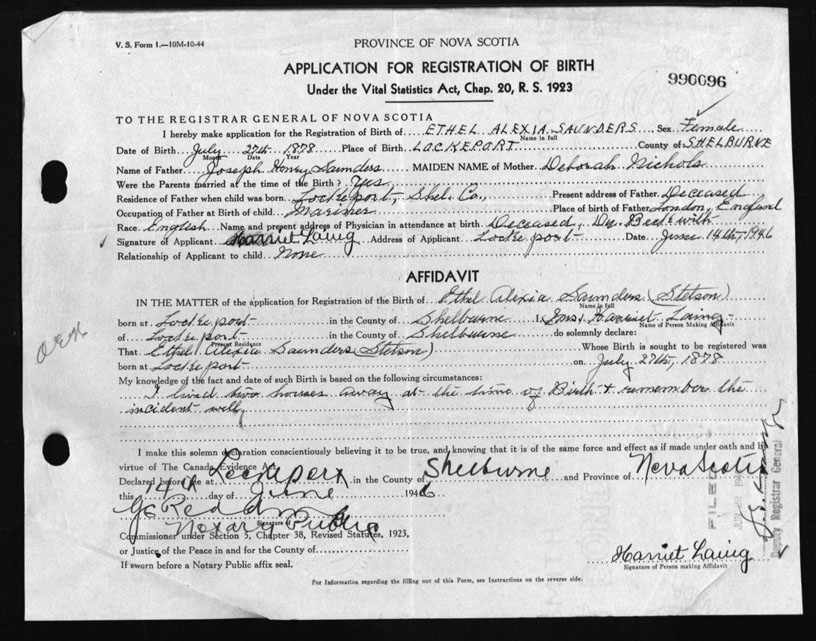 V. S. Form 1.—10M-10-44
PROVINCE OF NOVA SCOTIA
APPLICATION FOR REGISTRATION OF BIRTH
Under the Vital Statistics Act, Chap. 20, R. S. 1923
990096
TO THE REGISTRAR GENERAL OF NOVA SCOTIA
I hereby make application for the Registration of Birth of ETHEL ALEXIA SAUNDERS Sex Female
Name in full
Date of Birth July 27th 1878 Place of Birth LOCKEPORT County of SHELBURNE
Month Date Year
Name of Father Joseph Henry Saunders MAIDEN NAME of Mother Deborah Nichols
Were the Parents married at the time of the Birth? Yes
Residence of Father when child was born Lockeport, Shel. Co., Present address of Father Deceased
Occupation of Father at Birth of child Mariner Place of birth of Father London, England
Race English Name and present address of Physician in attendance at birth Deceased, Dr.
Signature of Applicant Harriet Laing Address of Applicant Lockeport Date June 14th, 1946
Relationship of Applicant to child None
AFFIDAVIT
IN THE MATTER of the application for Registration of the Birth of Ethel Alexia Saunders (Stetson)
Name in full
born at Lockeport in the County of Shelburne I, Harriet Laing
Name of Person Making Affidavit
of Lockeport in the County of Shelburne do solemnly declare:
Present Residence
That Ethel Alexia Saunders (Stetson) Whose Birth is sought to be registered was
born at Lockeport on July 27th, 1878
My knowledge of the fact and date of such Birth is based on the following circumstances:
I lived two houses away at the time of Birth & remember the
incident well,
I make this solemn declaration conscientiously believing it to be true, and knowing that it is of the same force and effect as if made under oath and by
virtue of The Canada Evidence Act.
Declared before me at Lockeport in the County of Shelburne and Province of Nova Scotia
this 14th day of June 1946
Notary Public
Signature of
Commissioner under Section 5, Chapter 38, Revised Statutes, 1923,
or Justice of the Peace in and for the County of
If sworn before a Notary Public affix seal.
Harriet Laing
Signature of Person making Affidavit
For Information regarding the filling out of this Form, see Instructions on the reverse side.
FILED
Deputy Registrar General